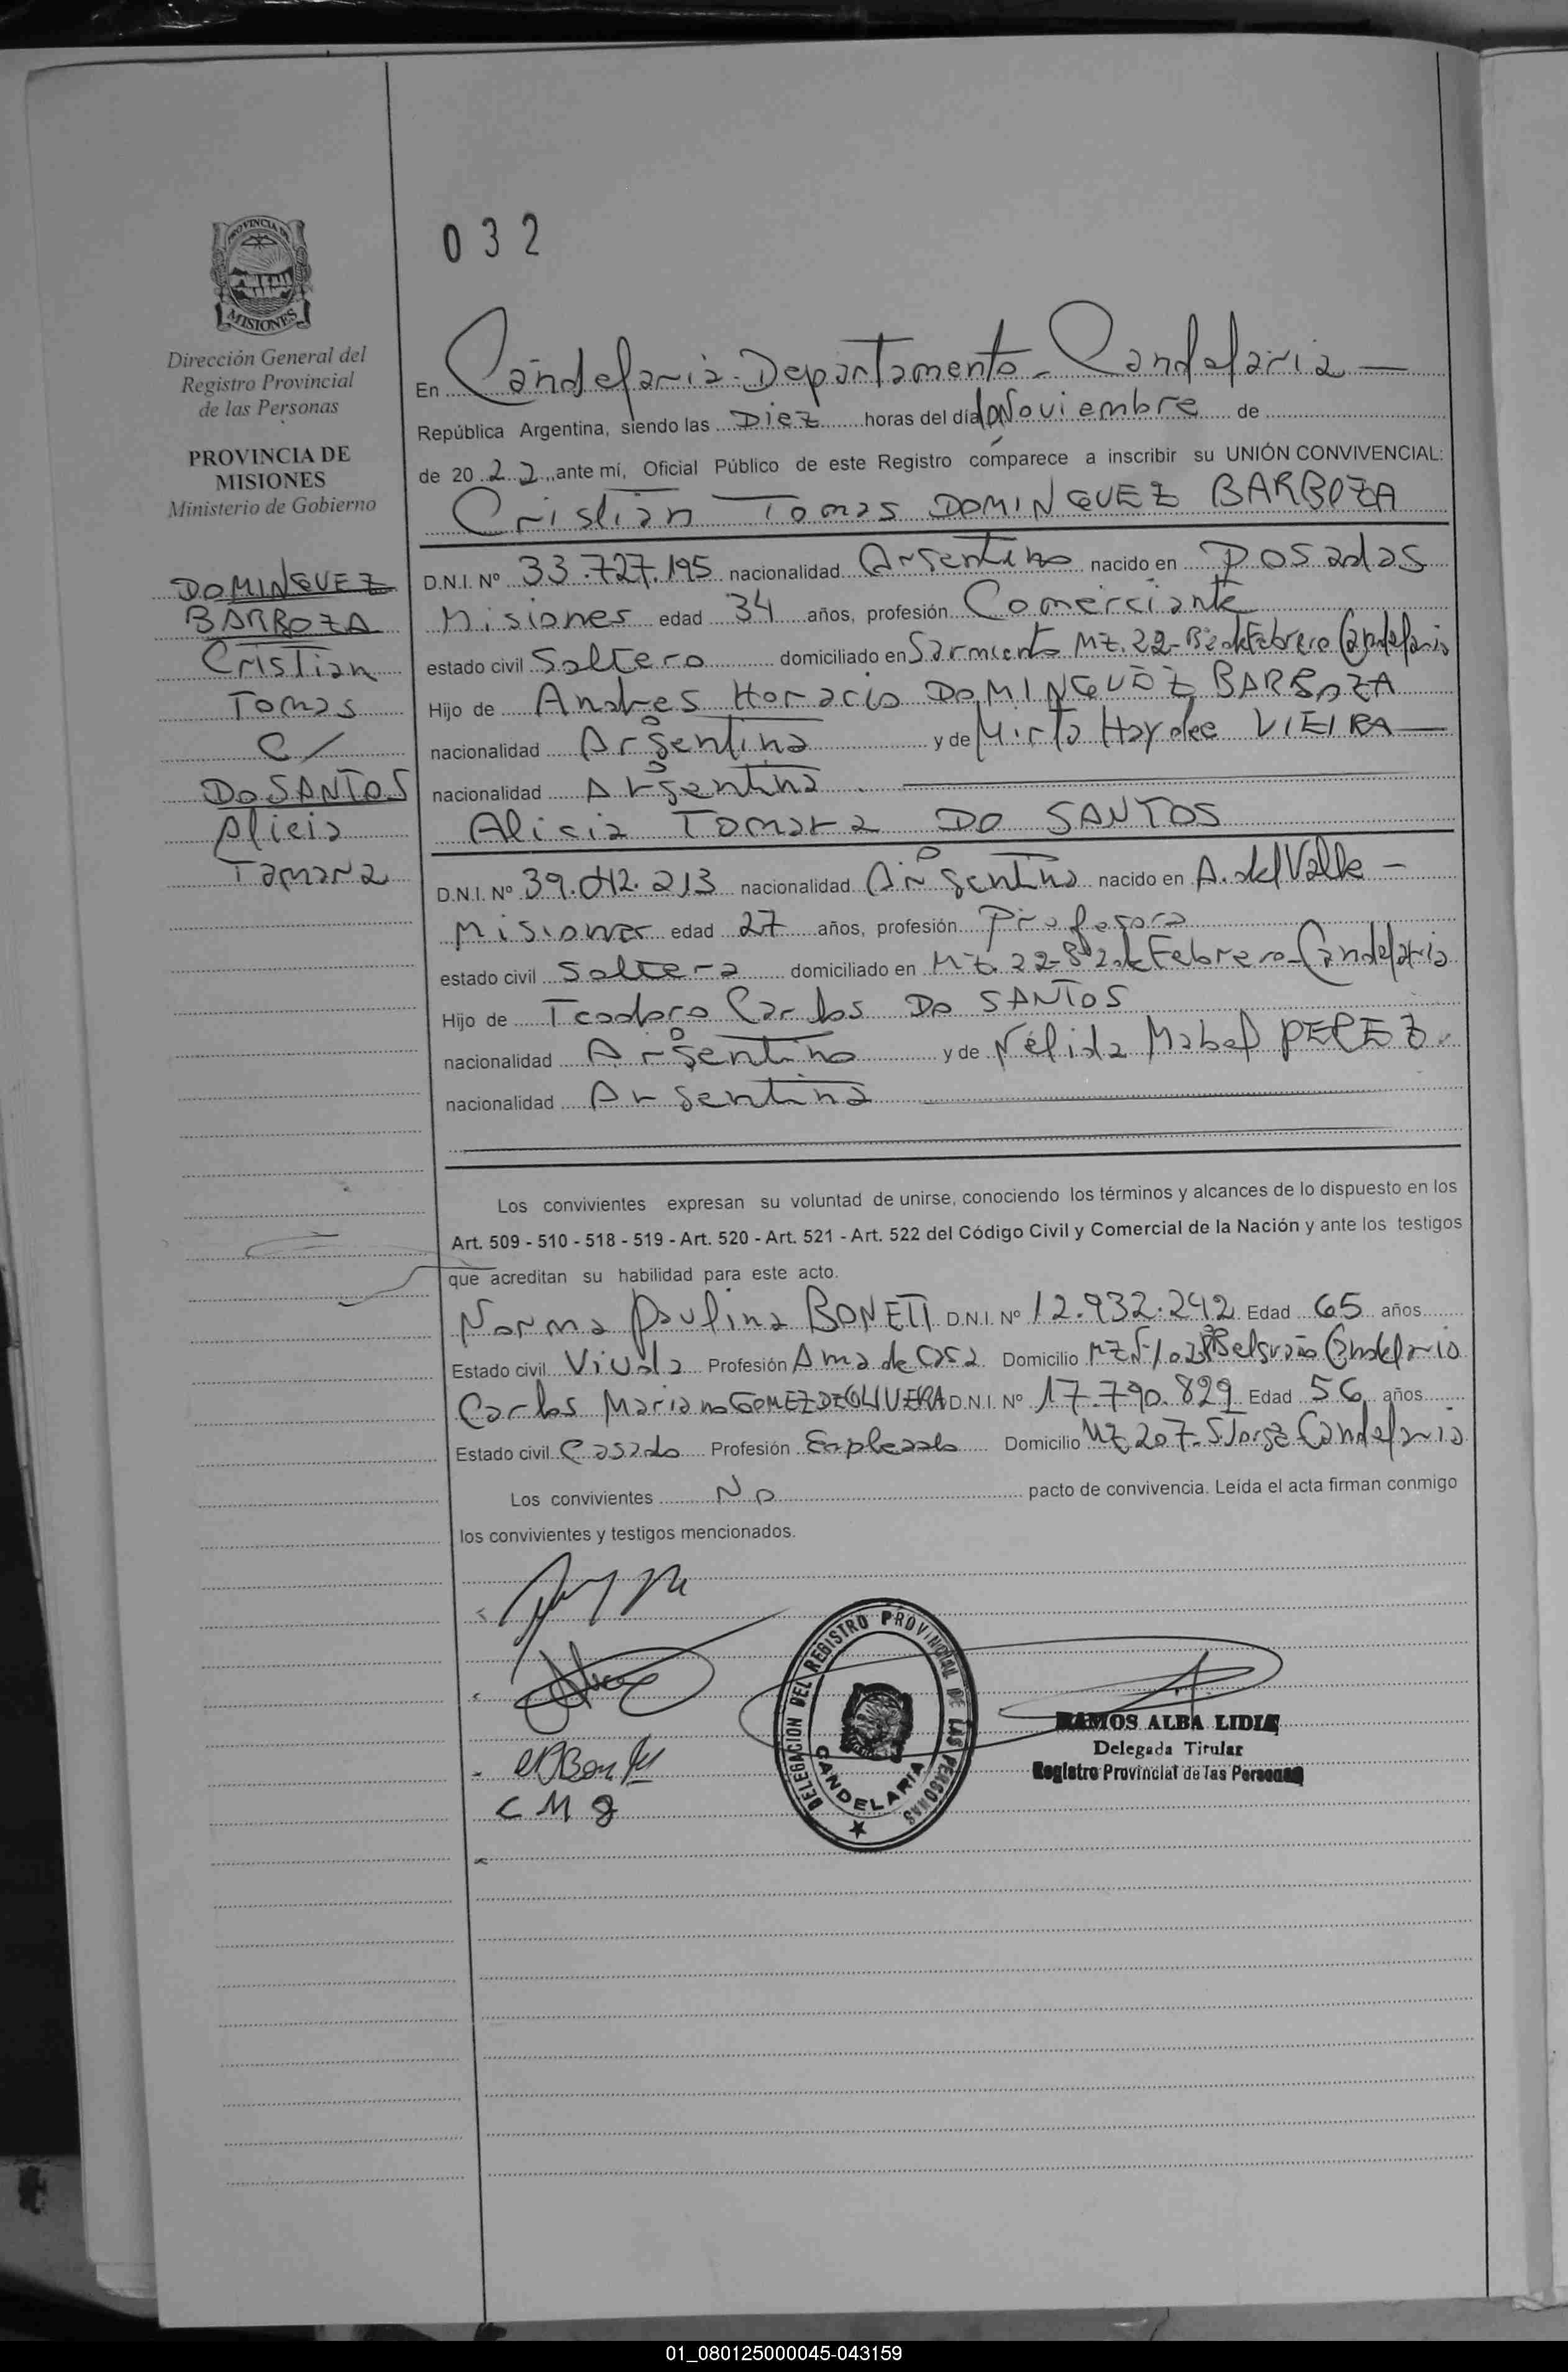 032
PROVINCIA DE
MISIONES
Dirección General del
Registro Provincial
de las Personas
PROVINCIA DE
MISIONES
Ministerio de Gobierno
DOMINGUEZ
BARBOZA
Cristian
Tomas
C/
DO SANTOS
Alicia
Tamara
En Candelaria - Departamento - Candelaria —
República Argentina, siendo las Diez horas del día 10 Noviembre de
de 20 22 ante mí, Oficial Público de este Registro comparece a inscribir su UNIÓN CONVIVENCIAL:
Cristian Tomas DOMINGUEZ BARBOZA
D.N.I. Nº 33.727.195 nacionalidad Argentino nacido en Posadas
Misiones edad 34 años, profesión Comerciante
estado civil Soltero domiciliado en Sarmiento Mz. 22 - Bº 2 de Febrero Candelaria
Hijo de Andres Horacio DOMINGUEZ BARBOZA
nacionalidad Argentina y de Mirta Haydee VIEIRA —
nacionalidad Argentina
Alicia Tamara DO SANTOS
D.N.I. Nº 39.042.213 nacionalidad Argentina nacido en A. del Valle -
Misiones edad 27 años, profesión Profesora
estado civil Soltera domiciliado en Mz. 22 - Bº 2 de Febrero - Candelaria
Hijo de Teodoro Carlos DO SANTOS
nacionalidad Argentino y de Nélida Mabel PEREZ
nacionalidad Argentina
Los convivientes expresan su voluntad de unirse, conociendo los términos y alcances de lo dispuesto en los
Art. 509 - 510 - 518 - 519 - Art. 520 - Art. 521 - Art. 522 del Código Civil y Comercial de la Nación y ante los testigos
que acreditan su habilidad para este acto.
Norma Paulina BONETI D.N.I. Nº 12.932.242 Edad 65 años
Estado civil Viuda Profesión Ama de Casa Domicilio Belgrano Candelaria
Carlos Mariano GOMEZ DE OLIVEIRA D.N.I. Nº 17.790.829 Edad 56 años
Estado civil Casado Profesión Empleado Domicilio Mz 207 - S Jorge Candelaria
Los convivientes No pacto de convivencia. Leída el acta firman conmigo
los convivientes y testigos mencionados.
C M G
DELEGACION DEL REGISTRO PROVINCIAL DE LAS PERSONAS
CANDELARIA
RAMOS ALBA LIDIA
Delegada Titular
Registro Provincial de las Personas
01_080125000045-043159